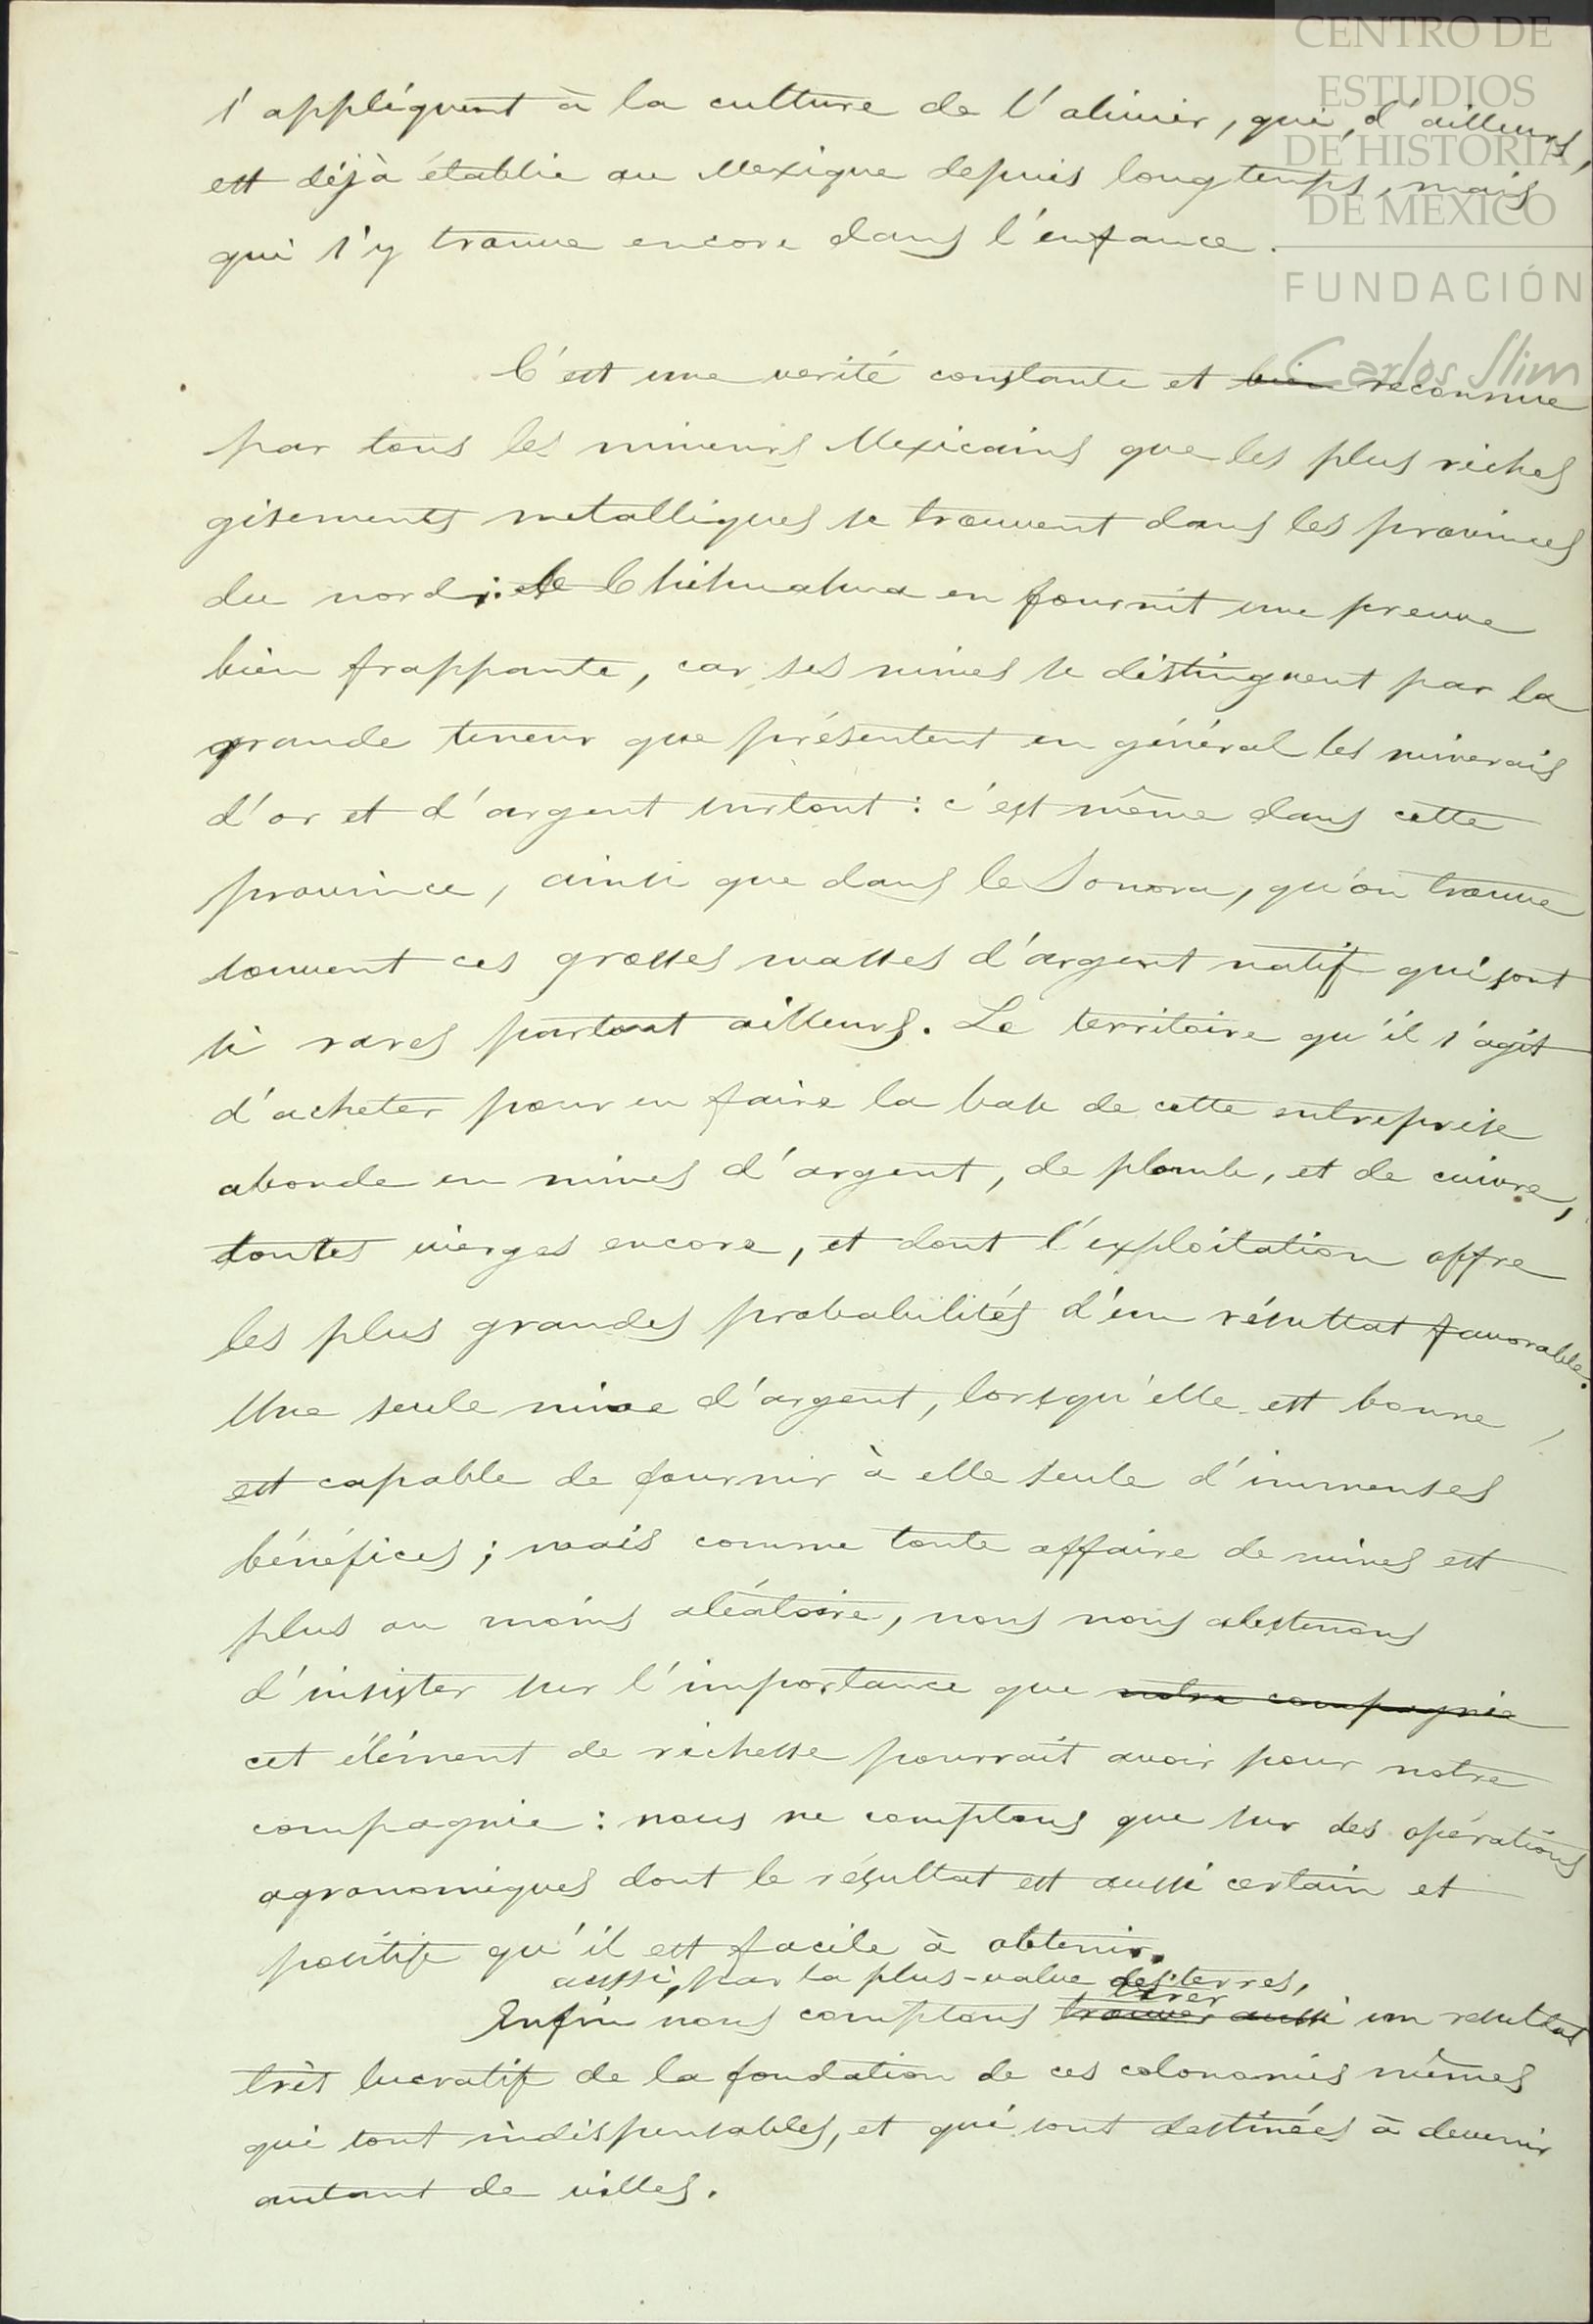 CENTRO DE
ESTUDIOS
DE HISTORIA
DE MEXICO
FUNDACIÓN
Carlos Slim
s'appliquent à la culture de l'olivier, qui, d'ailleurs,
est déjà établie au Mexique depuis longtemps, mais
qui s'y trouve encore dans l'enfance.
C'est une verité constante et bien reconnue
par tous les mineurs Mexicains que les plus riches
gisements metalliques se trouvent dans les provinces
du nord: le Chihuahua en fournit une preuve
bien frappante, car ses mines se distinguent par la
grande teneur que présentent en général les minerais
d'or et d'argent surtout: c'est même dans cette
province, ainsi que dans le Sonora, qu'on trouve
souvent ces grosses masses d'argent natif qui sont
si rares partout ailleurs. Le territoire qu'il s'agit
d'acheter pour en faire la base de cette entreprise
abonde en mines d'argent, de plomb, et de cuivre,
toutes vierges encore, et dont l'exploitation offre
les plus grandes probabilités d'un résultat favorable.
Une seule mine d'argent, lorsqu'elle est bonne,
est capable de fournir à elle seule d'immenses
bénéfices; mais comme toute affaire de mines est
plus ou moins aléatoire, nous nous abstenons
d'insister sur l'importance que notre compagnie
cet élément de richesse pourrait avoir pour notre
compagnie: nous ne comptons que sur des opérations
agronomiques dont le résultat est aussi certain et
positif qu'il est facile à obtenir.
aussi, par la plus-value des terres,
tirer
Enfin nous comptons trouver aussi un resultat
très lucratif de la fondation de ces colonanies mêmes
qui sont indispensables, et qui sont destinées à devenir
autant de villes.